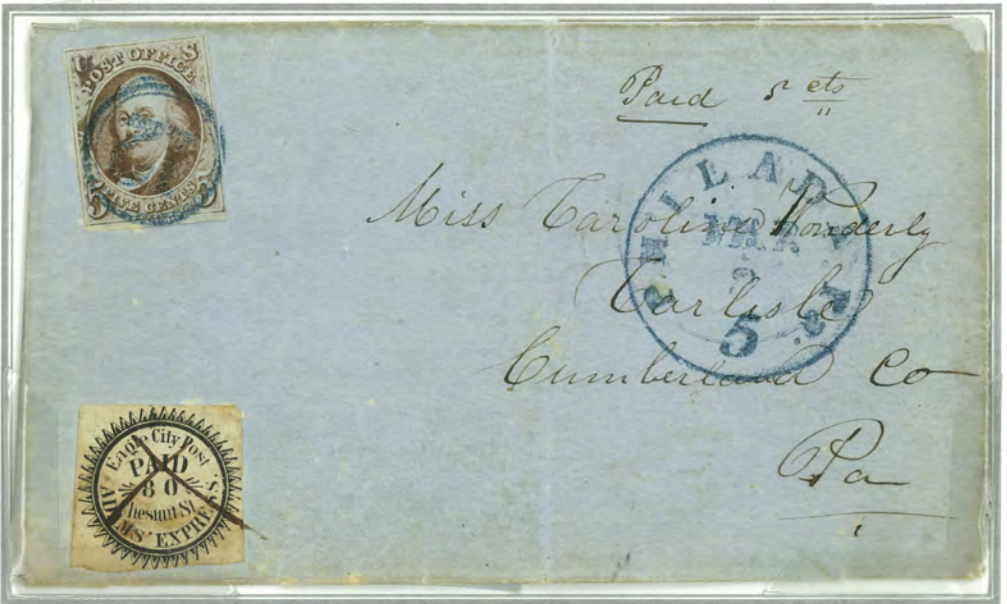 U S
POST OFFICE
5 FIVE CENTS 5
Paid 5 cts
PHILADA Pa.
MAR
5
Miss Caroline Wonderly
Carlisle
Cumberland Co
Pa
Eagle City Post
PAID
80
Chesnut St
ADAMS' EXPRESS.